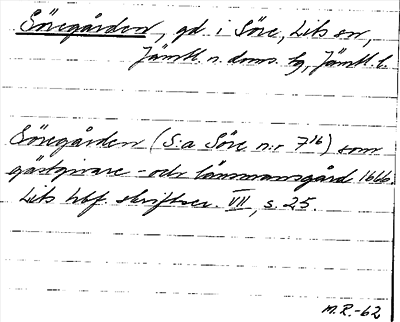 Söregården, gd. i Söre, Lits sn,
Jämtl. n. doms. tg, Jämtl. l.
Söregården (S:a Söre n:r 7¹⁶) som
gästgivare- och länsmansgård 1666.
Lits hbf. skriftser. VII, s. 25.
M.R.-62